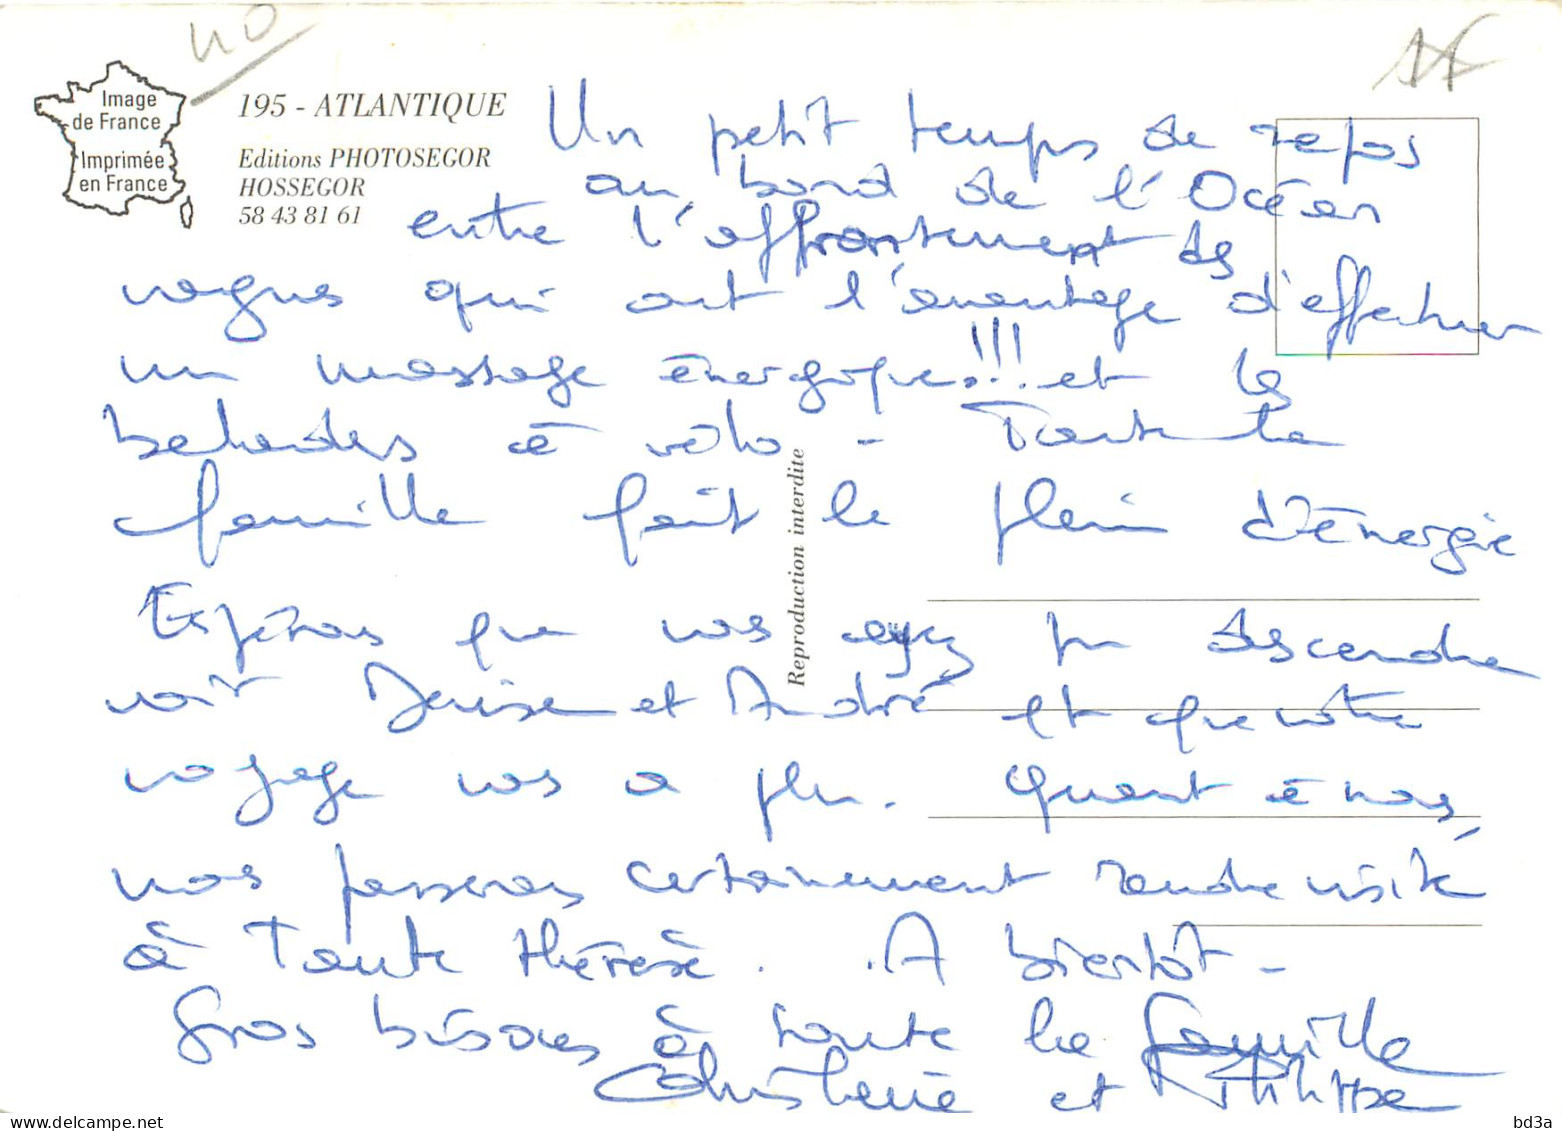 40
Image
de France
Imprimée
en France
195 - ATLANTIQUE
Editions PHOTOSEGOR
HOSSEGOR
58 43 81 61
Un petit temps de repos
au bord de l'Océan
entre l'affrontement des
vagues qui ont l'avantage d'effectuer
un massage énergique!!! et les
balades à vélo - Toute la
famille fait le plein d'énergie
Espérons que vous ayez pu descendre
voir Denise et André et que votre
voyage vous a plu. Quant à nous,
nous passerons certainement rendre visite
à Tante Thérèse. A bientôt -
Gros bisous à toute la famille
Christine et Philippe
Reproduction interdite
delcampe.net
bd3a